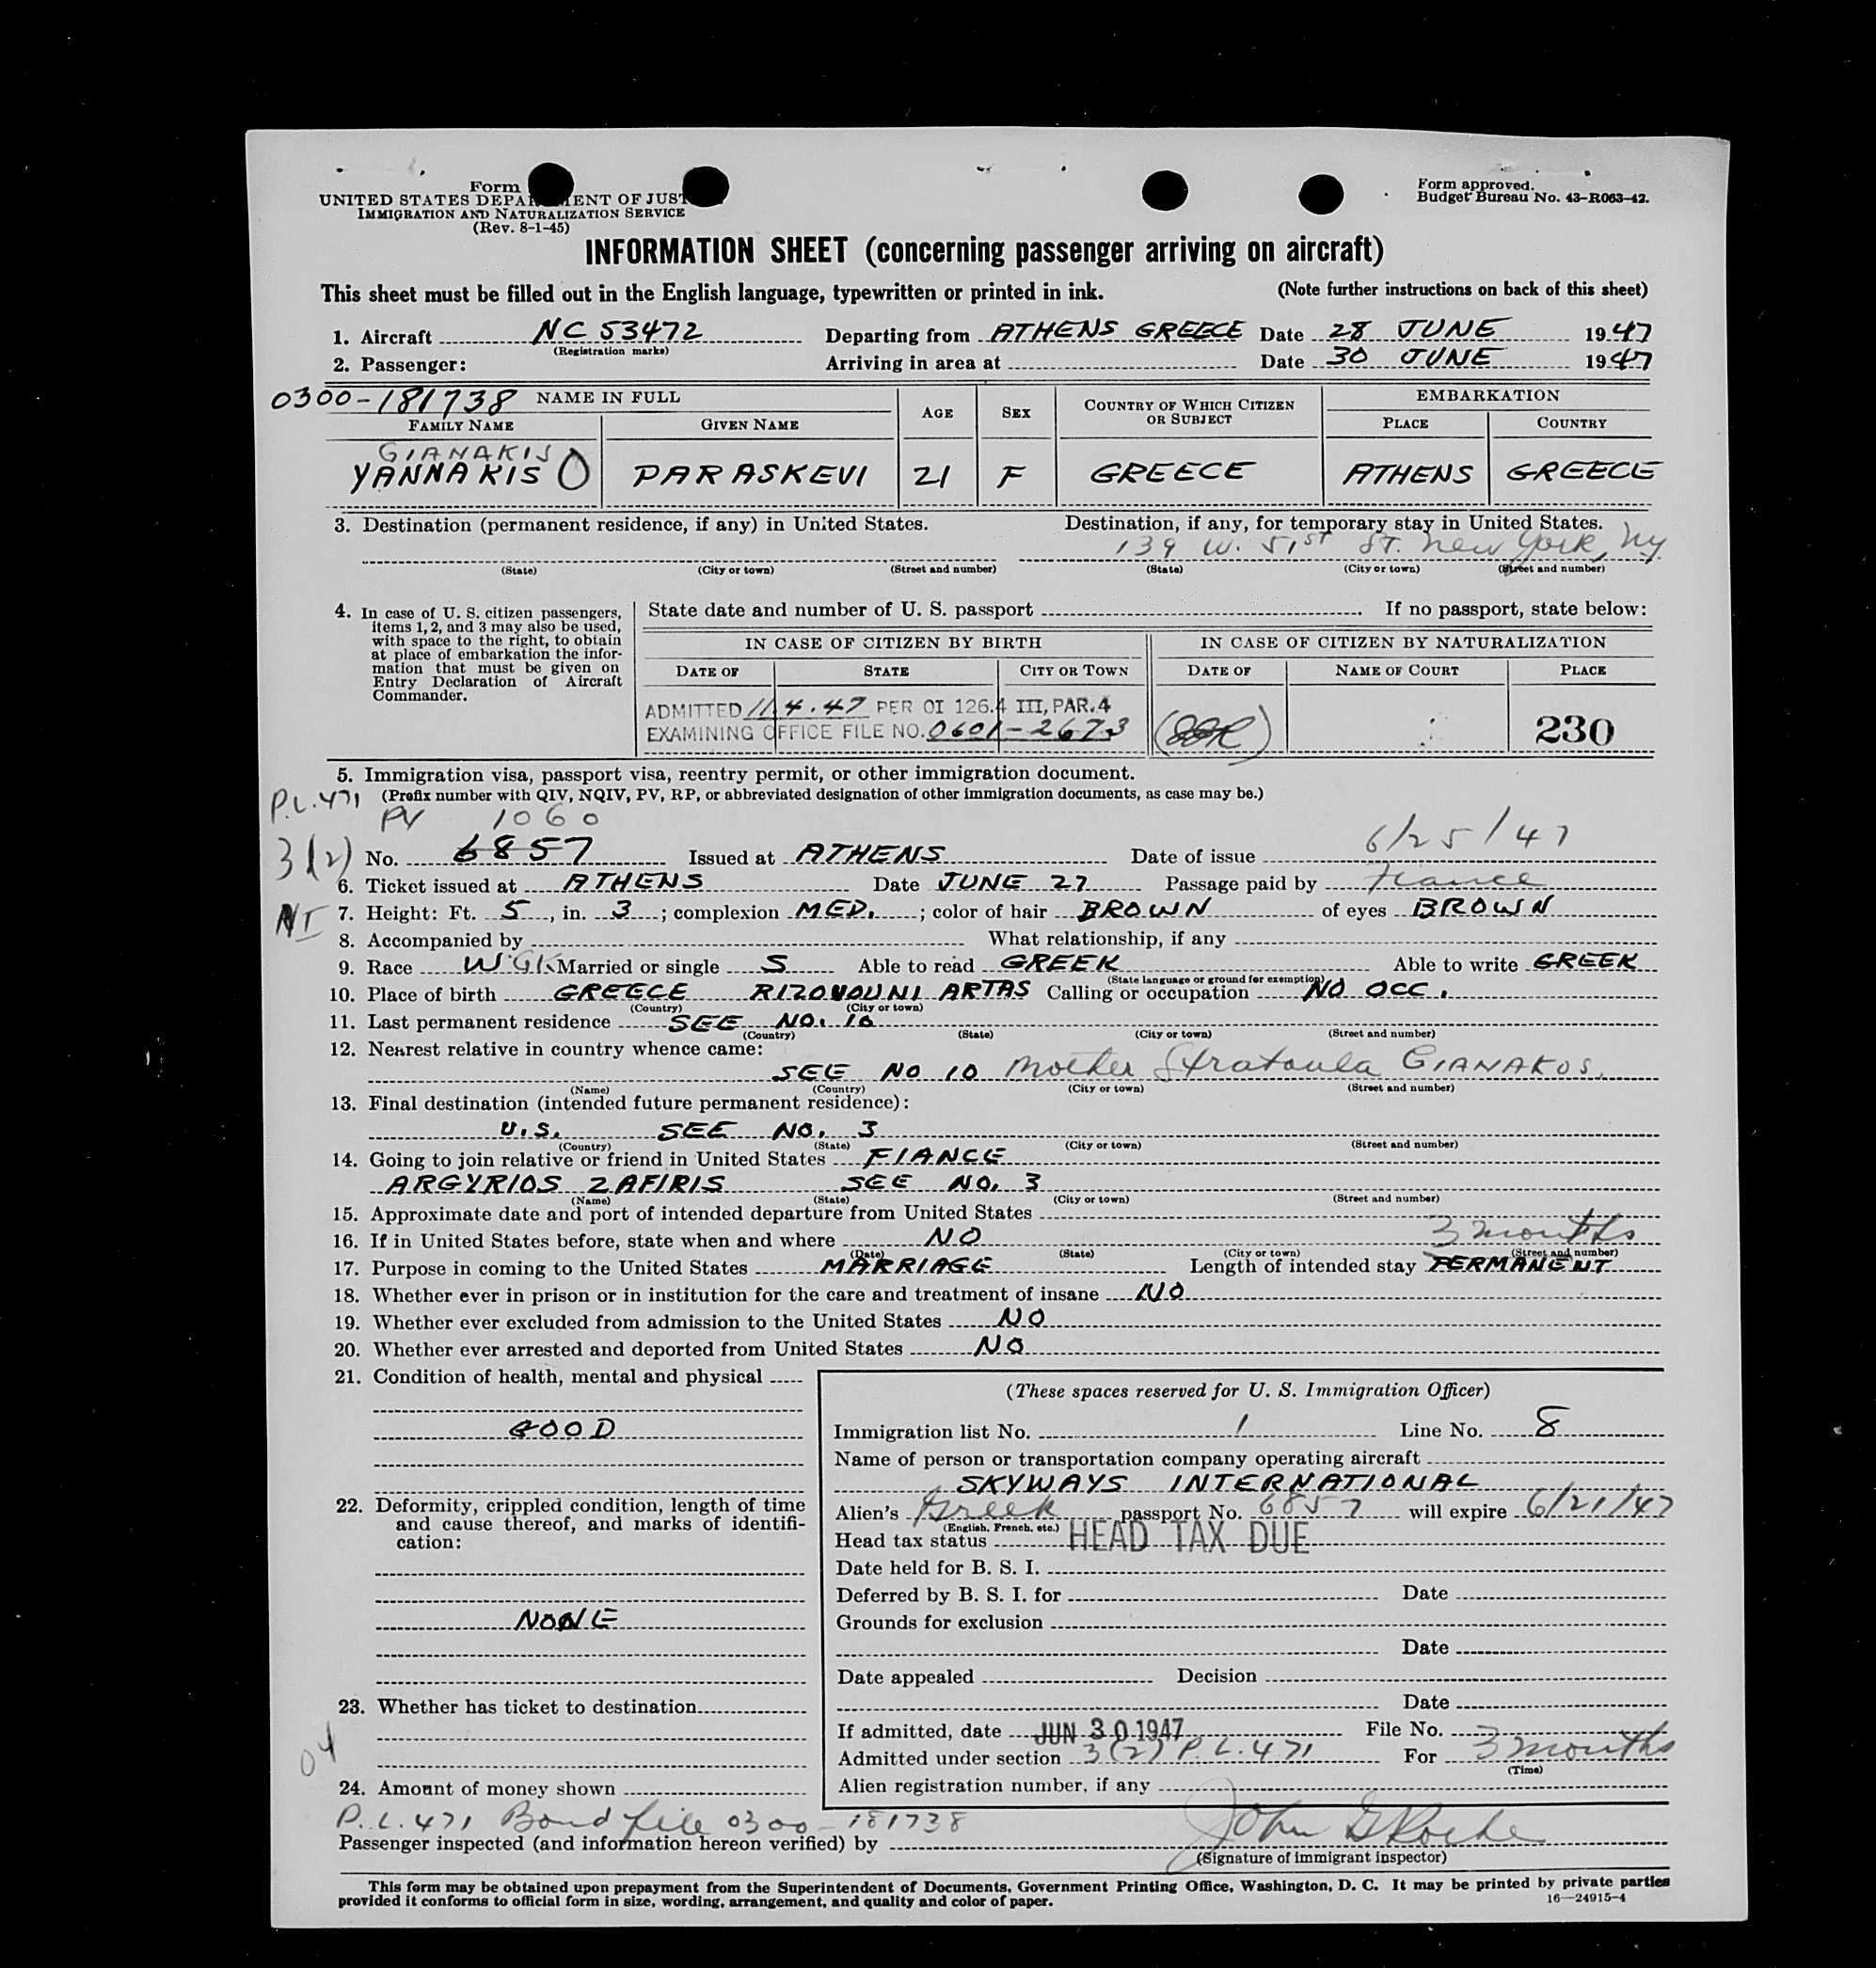 Form
UNITED STATES DEPARTMENT OF JUS
IMMIGRATION AND NATURALIZATION SERVICE
(Rev. 8-1-45)
Form approved.
Budget Bureau No. 43-R063-42.
INFORMATION SHEET (concerning passenger arriving on aircraft)
This sheet must be filled out in the English language, typewritten or printed in ink. (Note further instructions on back of this sheet)
1. Aircraft NC 53472 Departing from ATHENS GREECE Date 28 JUNE 1947
(Registration marks)
2. Passenger: Arriving in area at Date 30 JUNE 1947
0300-181738 NAME IN FULL AGE SEX COUNTRY OF WHICH CITIZEN OR SUBJECT EMBARKATION
FAMILY NAME GIVEN NAME PLACE COUNTRY
GIANAKIS
YANNAKIS PARASKEVI 21 F GREECE ATHENS GREECE
3. Destination (permanent residence, if any) in United States. Destination, if any, for temporary stay in United States.
139 W. 51ST ST. New York, NY.
(State) (City or town) (Street and number) (State) (City or town) (Street and number)
4. In case of U. S. citizen passengers, items 1, 2, and 3 may also be used, with space to the right, to obtain at place of embarkation the information that must be given on Entry Declaration of Aircraft Commander.
State date and number of U. S. passport If no passport, state below:
IN CASE OF CITIZEN BY BIRTH IN CASE OF CITIZEN BY NATURALIZATION
DATE OF STATE CITY OR TOWN DATE OF NAME OF COURT PLACE
ADMITTED 11.4.47 PER OI 126.4 III, PAR.4
EXAMINING OFFICE FILE NO. 0601-2673 230
5. Immigration visa, passport visa, reentry permit, or other immigration document.
P.L.471 (Prefix number with QIV, NQIV, PV, RP, or abbreviated designation of other immigration documents, as case may be.)
PV 1060
3(2) No. 6857 Issued at ATHENS Date of issue 6/25/47
6. Ticket issued at ATHENS Date JUNE 27 Passage paid by Fiance
NI 7. Height: Ft. 5, in. 3; complexion MED.; color of hair BROWN of eyes BROWN
8. Accompanied by What relationship, if any
9. Race W GK Married or single S Able to read GREEK Able to write GREEK
(State language or ground for exemption)
10. Place of birth GREECE RIZOVOUNI ARTAS Calling or occupation NO OCC.
(Country) (City or town)
11. Last permanent residence SEE NO. 10
(Country) (State) (City or town) (Street and number)
12. Nearest relative in country whence came:
SEE NO 10 Mother Stratoula GIANAKOS.
(Name) (Country) (City or town) (Street and number)
13. Final destination (intended future permanent residence):
U.S. SEE NO. 3
(Country) (State) (City or town) (Street and number)
14. Going to join relative or friend in United States FIANCE
ARGYRIOS ZAFIRIS SEE NO. 3
(Name) (State) (City or town) (Street and number)
15. Approximate date and port of intended departure from United States
16. If in United States before, state when and where NO 3 months
(Date) (State) (City or town) (Street and number)
17. Purpose in coming to the United States MARRIAGE Length of intended stay PERMANENT
18. Whether ever in prison or in institution for the care and treatment of insane NO
19. Whether ever excluded from admission to the United States NO
20. Whether ever arrested and deported from United States NO
21. Condition of health, mental and physical
GOOD
22. Deformity, crippled condition, length of time and cause thereof, and marks of identification:
NONE
23. Whether has ticket to destination
04
24. Amount of money shown
(These spaces reserved for U. S. Immigration Officer)
Immigration list No. 1 Line No. 8
Name of person or transportation company operating aircraft
SKYWAYS INTERNATIONAL
Alien's Greek passport No. 6857 will expire 6/21/47
(English, French, etc.)
Head tax status HEAD TAX DUE
Date held for B. S. I.
Deferred by B. S. I. for Date
Grounds for exclusion
Date
Date appealed Decision
Date
If admitted, date JUN 30 1947 File No.
Admitted under section 3(2) P.L. 471 For 3 months
(Time)
Alien registration number, if any
P.L. 471 Bond file 0300-181738
Passenger inspected (and information hereon verified) by John G Roche
(Signature of immigrant inspector)
This form may be obtained upon prepayment from the Superintendent of Documents, Government Printing Office, Washington, D. C. It may be printed by private parties
provided it conforms to official form in size, wording, arrangement, and quality and color of paper. 16—24915-4